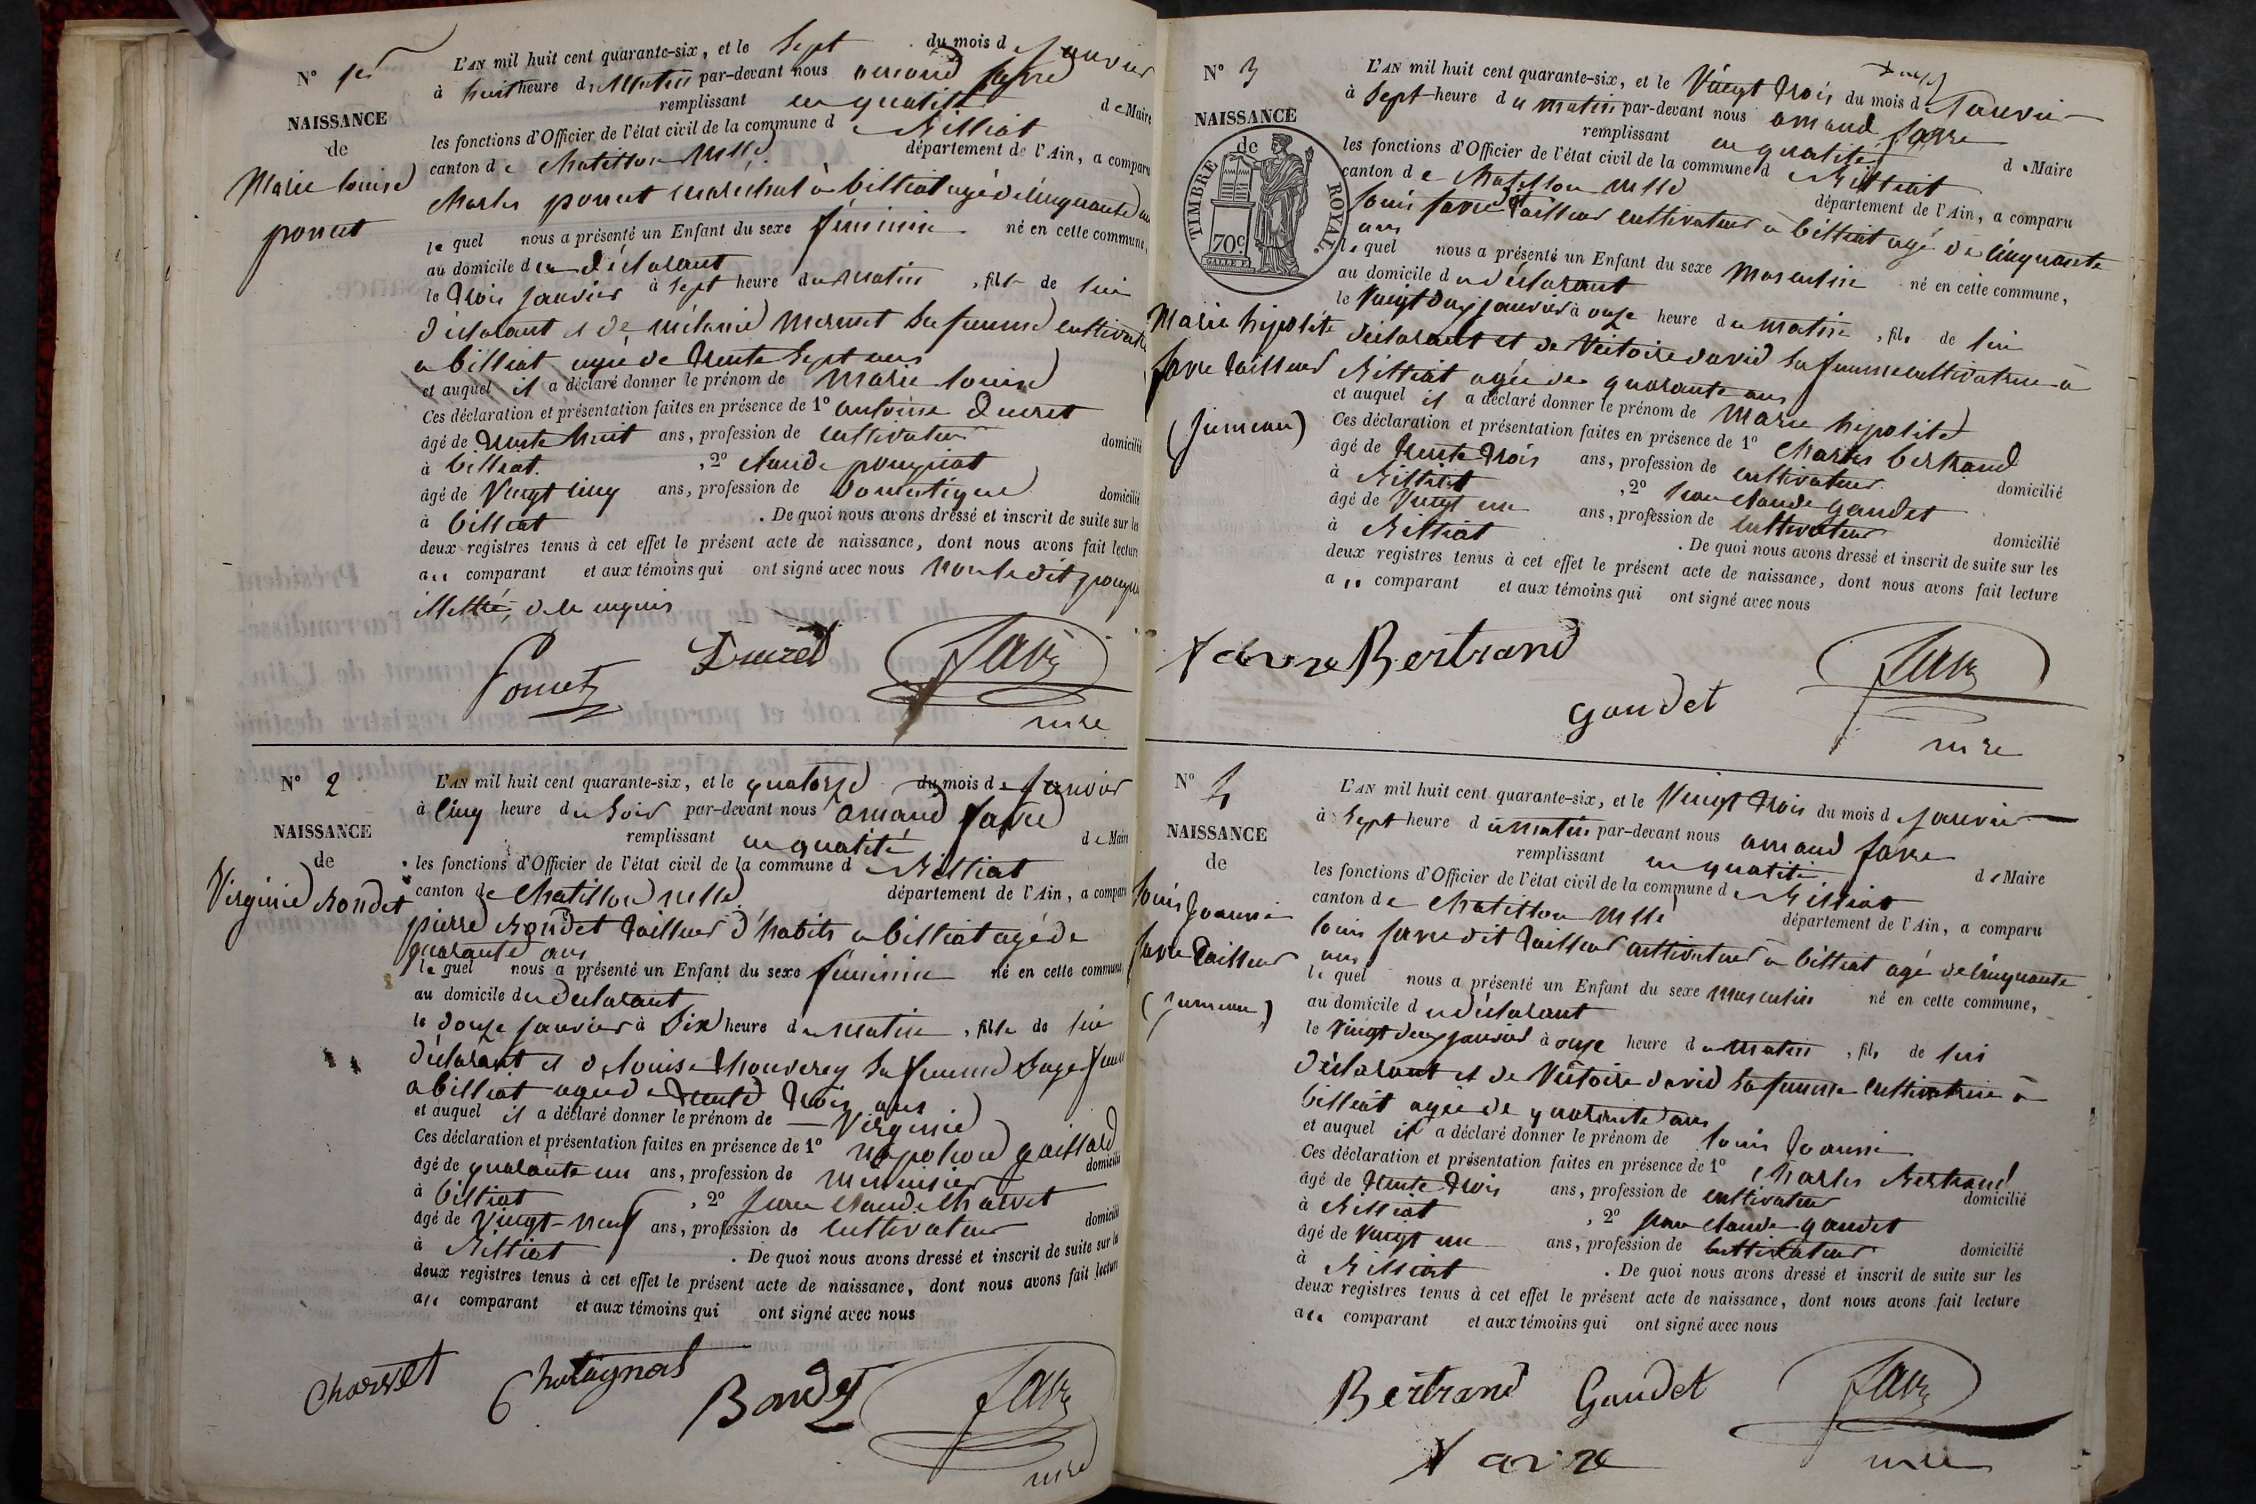 N° 1er
NAISSANCE
de
Marie Louise
poncet
L'AN mil huit cent quarante-six, et le sept du mois de janvier
à huit heure du matin par-devant nous amand favre
remplissant en qualité de Maire
les fonctions d'Officier de l'état civil de la commune de Billiat
canton de Chatillon département de l'Ain, a comparu
Charles poncet maréchal à billiat agé de cinquante ans
lequel nous a présenté un Enfant du sexe féminin né en cette commune,
au domicile du déclarant
le trois janvier à sept heure du matin, fille de lui
déclarant et de mélanie mermet sa femme
a billiat agée de trente sept ans
et auquel il a déclaré donner le prénom de Marie louise
Ces déclaration et présentation faites en présence de 1° antoine Ducret
âgé de trente huit ans, profession de cultivateur domicilié
à billiat, 2° claude pougniat
âgé de vingt cinq ans, profession de domestique domicilié
à billiat. De quoi nous avons dressé et inscrit de suite sur les
deux registres tenus à cet effet le présent acte de naissance, dont nous avons fait lecture
au comparant et aux témoins qui ont signé avec nous non ledit
illettré, de ce enquis
Poncet Ducret Favre
mre
N° 2
NAISSANCE
de
Virginie Bondet
L'AN mil huit cent quarante-six, et le quatorze du mois de janvier
à cinq heure du soir par-devant nous amand favre
remplissant en qualité de Maire
les fonctions d'Officier de l'état civil de la commune de Billiat
canton de Chatillon département de l'Ain, a comparu
pierre Bondet tailleur d'habits a billiat agé de
quarante ans
lequel nous a présenté un Enfant du sexe féminin né en cette commune,
au domicile du déclarant
le douze janvier à six heure du matin, fille de lui
déclarant et de louise sa femme sage femme
a billiat agée de trente trois ans
et auquel il a déclaré donner le prénom de Virginie
Ces déclaration et présentation faites en présence de 1° napoléon gaillard
âgé de quarante un ans, profession de menuisier domicilié
à billiat, 2° jean claude charvet
âgé de vingt-neuf ans, profession de cultivateur domicilié
à Billiat. De quoi nous avons dressé et inscrit de suite sur les
deux registres tenus à cet effet le présent acte de naissance, dont nous avons fait lecture
au comparant et aux témoins qui ont signé avec nous
Charvet Bondet Favre
mre
N° 3
NAISSANCE
de
TIMBRE ROYAL.
70c
Marie hipolite
favre tailleur
(jumeau)
L'AN mil huit cent quarante-six, et le Vingt trois du mois de Janvier
à sept heure du matin par-devant nous amand favre
remplissant en qualité de Maire
les fonctions d'Officier de l'état civil de la commune de Billiat
canton de Chatillon département de l'Ain, a comparu
louis favre tailleur cultivateur à billiat agé de cinquante
ans
lequel nous a présenté un Enfant du sexe masculin né en cette commune,
au domicile du déclarant
le vingt deux janvier à onze heure du matin, fils de lui
déclarant et de Victoire david sa femme cultivatrice à
Billiat agée de quarante ans
et auquel il a déclaré donner le prénom de Marie hipolite
Ces déclaration et présentation faites en présence de 1° Charles bertrand
âgé de trente trois ans, profession de cultivateur domicilié
à Billiat, 2° jean claude gaudet
âgé de Vingt un ans, profession de cultivateur domicilié
à Billiat. De quoi nous avons dressé et inscrit de suite sur les
deux registres tenus à cet effet le présent acte de naissance, dont nous avons fait lecture
au comparant et aux témoins qui ont signé avec nous
Favre Bertrand Favre
gaudet
mre
N° 4
NAISSANCE
de
louis
favre tailleur
(jumeau)
L'AN mil huit cent quarante-six, et le Vingt trois du mois de janvier
à sept heure du matin par-devant nous amand favre
remplissant en qualité de Maire
les fonctions d'Officier de l'état civil de la commune de Billiat
canton de Chatillon département de l'Ain, a comparu
louis favre dit tailleur cultivateur à billiat agé de cinquante
ans
lequel nous a présenté un Enfant du sexe masculin né en cette commune,
au domicile du déclarant
le vingt deux janvier à onze heure du matin, fils de lui
déclarant et de Victoire david sa femme cultivatrice à
billiat agée de quarante ans
et auquel il a déclaré donner le prénom de louis
Ces déclaration et présentation faites en présence de 1° Charles Bertrand
âgé de trente trois ans, profession de cultivateur domicilié
à Billiat, 2° jean claude gaudet
âgé de vingt un ans, profession de cultivateur domicilié
à Billiat. De quoi nous avons dressé et inscrit de suite sur les
deux registres tenus à cet effet le présent acte de naissance, dont nous avons fait lecture
au comparant et aux témoins qui ont signé avec nous
Bertrand Gaudet Favre
Favre mre